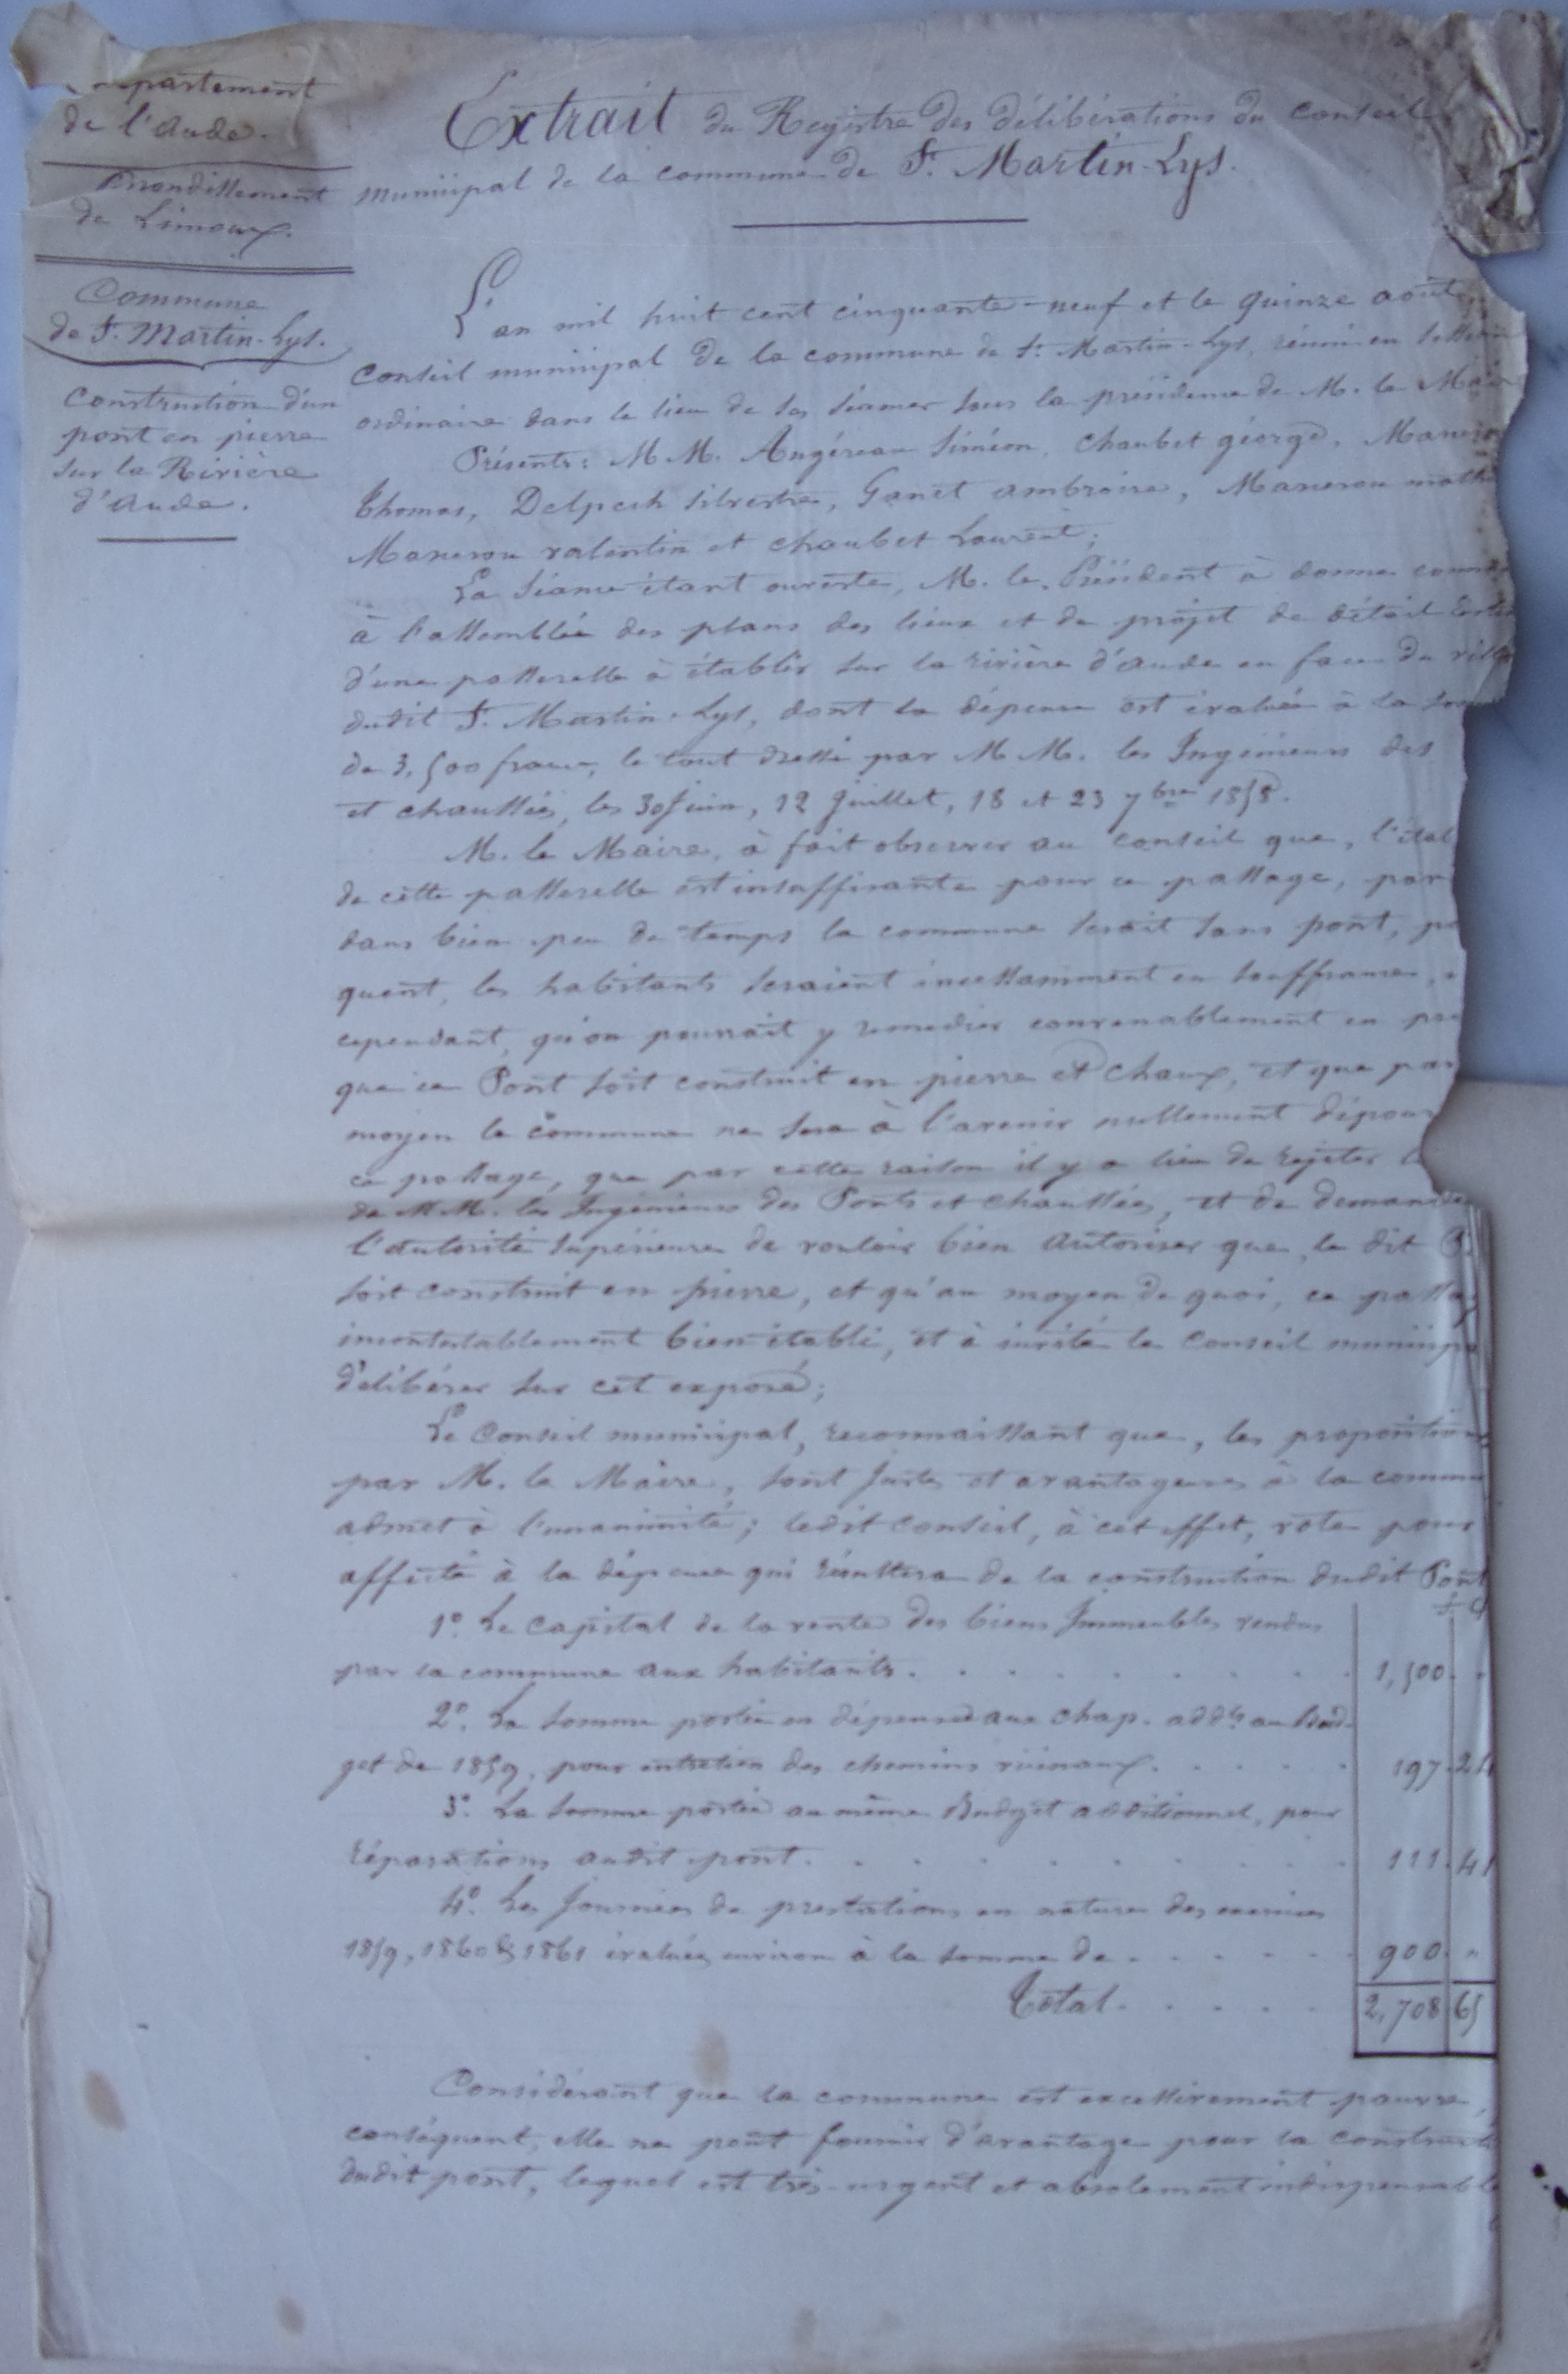 Département
de l'Aude.
Arrondissement
de Limoux.
Commune
de St. Martin-Lys.
Construction d'un
pont en pierre
sur la Rivière
d'Aude.
Extrait du Registre des délibérations du conseil
municipal de la commune de St. Martin-Lys.
L'an mil huit cent cinquante-neuf et le quinze août
conseil municipal de la commune de St. Martin-Lys, réuni en session
ordinaire dans le lieu de ses séances sous la présidence de M. le Maire
Présents: M M. Augéreau Siméon, Chaubet géorge,
Thomas, Delpech silvestre, Ganet ambroise,
valentin et chaubet Laurent;
La séance étant ouverte, M. le Président à donne
à l'assemblée des plans des lieux et du projet de détail
d'une passerelle à établir sur la rivière d'aude en face du
dudit St. Martin-Lys, dont la dépense est évaluée à la
de 3,500 francs, le tout dressé par M M. les Ingénieurs des
et chaussées, les 30 Juin, 12 Juillet, 18 et 23 7bre 1858.
M. le Maire, à fait observer au conseil que, l'
de cette passerelle est insuffisante pour ce passage, par
dans bien peu de temps la commune serait sans pont,
quent, les habitants seraient incessamment en souffrance,
cependant, qu'on pourrait y remedier convenablement en
que ce Pont soit construit en pierre et chaux, et que par
moyen la commune ne sera à l'avenir nullement
ce passage, que par cette raison il y a lieu de rejeter
de M M. les Ingénieurs des Ponts et chaussées, et de demander
l'autorité supérieure de vouloir bien autoriser que, le dit
soit construit en pierre, et qu'au moyen de quoi, ce
incontestablement bien établi, et à invité le conseil
délibérer sur cet exposé;
Le Conseil municipal, reconnaissant que, les propositions
par M. le Maire, sont justes et avantageuses à la
admet à l'unanimité; ledit conseil, à cet effet, vote pour
affecté à la dépense qui résultera de la construction dudit Pont
1º. Le capital de la vente des biens Immeubles vendus
par la commune aux habitants. . . . . . . . . 1,500. "
2º. La somme portée en dépense aux chap. addls au Bud-
get de 1859, pour entretien des chemins vicinaux. . . . . . 197. 24
3º. La somme portée au même Budget additionnel, pour
réparations audit pont. . . . . . . . . . 111. 41
4º. Les Journées de prestations en nature des exercices
1859, 1860 & 1861 évaluées environ à la somme de . . . . . . 900. "
Total. . . . . . 2,708 65
Considérant que la commune est excessivement pauvre,
conséquent, elle ne peut fournir d'avantage pour la
dudit pont, lequel est très-urgent et absolument indispensable